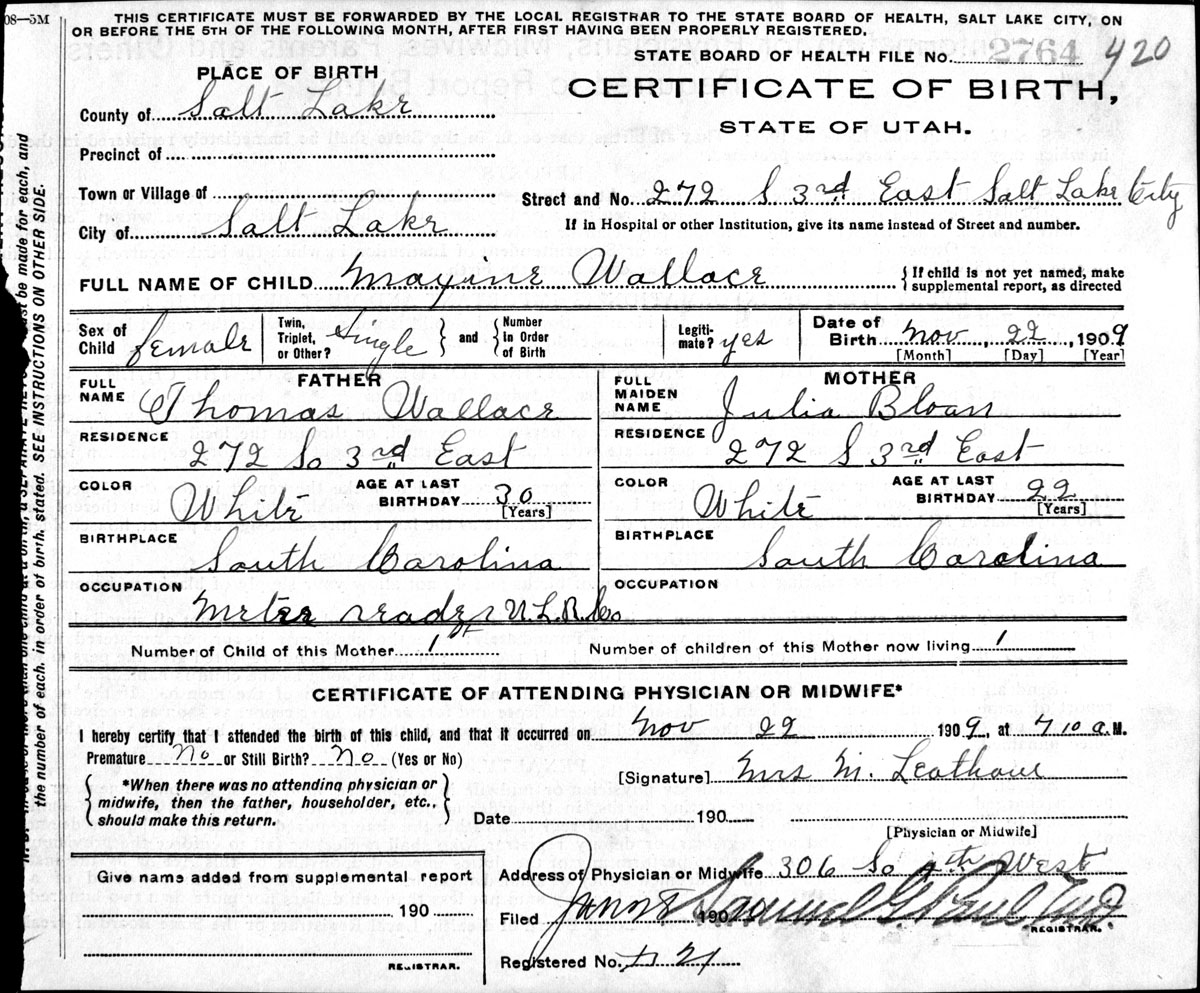 08—5M
THIS CERTIFICATE MUST BE FORWARDED BY THE LOCAL REGISTRAR TO THE STATE BOARD OF HEALTH, SALT LAKE CITY, ON
OR BEFORE THE 5TH OF THE FOLLOWING MONTH, AFTER FIRST HAVING BEEN PROPERLY REGISTERED.
STATE BOARD OF HEALTH FILE NO. 2764 420
PLACE OF BIRTH
CERTIFICATE OF BIRTH,
County of Salt Lake
STATE OF UTAH.
Precinct of
Town or Village of
Street and No. 272 S 3rd East Salt Lake City
City of Salt Lake
If in Hospital or other Institution, give its name instead of Street and number.
FULL NAME OF CHILD Maxine Wallace
{ If child is not yet named, make
supplemental report, as directed
Sex of Child female
Twin, Triplet, or Other? Single } and { Number In Order of Birth
Legiti-mate? yes
Date of Birth Nov, 22, 1909
[Month] [Day] [Year]
FATHER
FULL NAME Thomas Wallace
RESIDENCE 272 So 3rd East
COLOR White
AGE AT LAST BIRTHDAY 30
[Years]
BIRTHPLACE South Carolina
OCCUPATION
Meter reader U.L.R.Co
MOTHER
FULL MAIDEN NAME Julia Bloan
RESIDENCE 272 S 3rd East
COLOR White
AGE AT LAST BIRTHDAY 22
[Years]
BIRTHPLACE South Carolina
OCCUPATION
Number of Child of this Mother 1st
Number of children of this Mother now living 1
CERTIFICATE OF ATTENDING PHYSICIAN OR MIDWIFE*
I hereby certify that I attended the birth of this child, and that it occurred on Nov 22 1909, at 710 a.M.
Premature No or Still Birth? No (Yes or No)
{ *When there was no attending physician or
midwife, then the father, householder, etc.,
should make this return. }
[Signature] Mrs M.
Date 190
[Physician or Midwife]
Address of Physician or Midwife 306 So West
Give name added from supplemental report
190
REGISTRAR.
Filed Jan 190 Samuel G. Paul
REGISTRAR.
Registered No. 21
the number of each, in order of birth, stated. SEE INSTRUCTIONS ON OTHER SIDE.